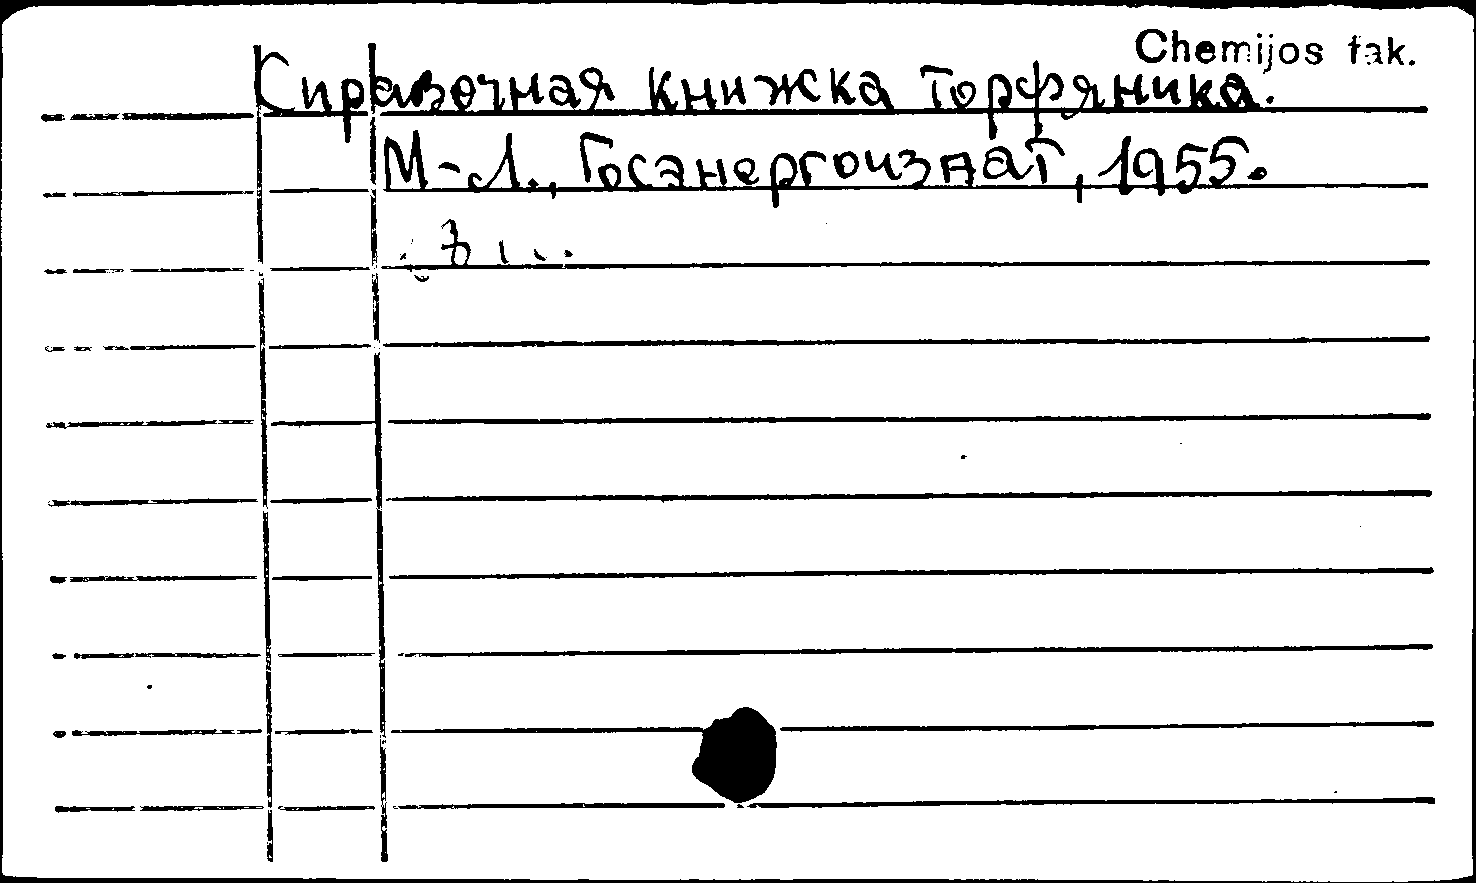 Chemijos fak.
Справочная книжка торфяника.
М-Л., Госэнергоиздат, 1955.